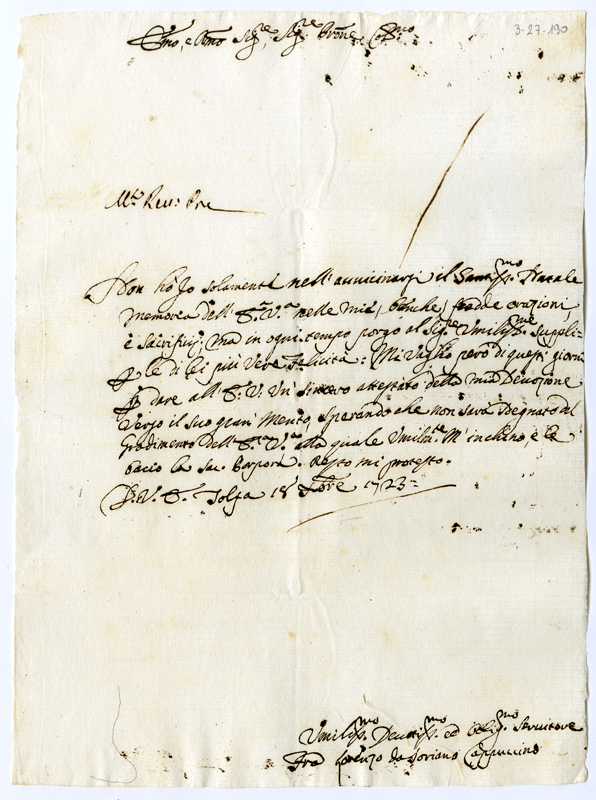 3-27-190
Emo, e Rmo Sig.re, Sig.re Prone Col.mo
M.to Reu: Pre
Non hò Jo solamente nell'auuicinarsi il Santiss.mo Natale
memoria dell'E.a V.a nelle mie, benche, fredde orazioni,
è Sacrifitij; ma in ogni tempo porgo al Sig.re Umiliss.me suppli-
p le di lei più Vere Felicità: Mi Vaglio però di questi giorni
p dare all'E. V. Un' sincero attestato della mia Deuozione
Verso il suo gran' Merito, sperando che non sarà sdegnato dal
Gradimento dell'E. V.a alla quale Umilm.te M'inchino, e le
bacio la Sac. Porpora. Resto mi protesto.
D. V. E. Tolfa 18 Xbre 1723=
Umiliss.mo Deuotiss.mo ed Oblig.mo Seruitore
Fra Lorenzo da Soriano Cappuccino